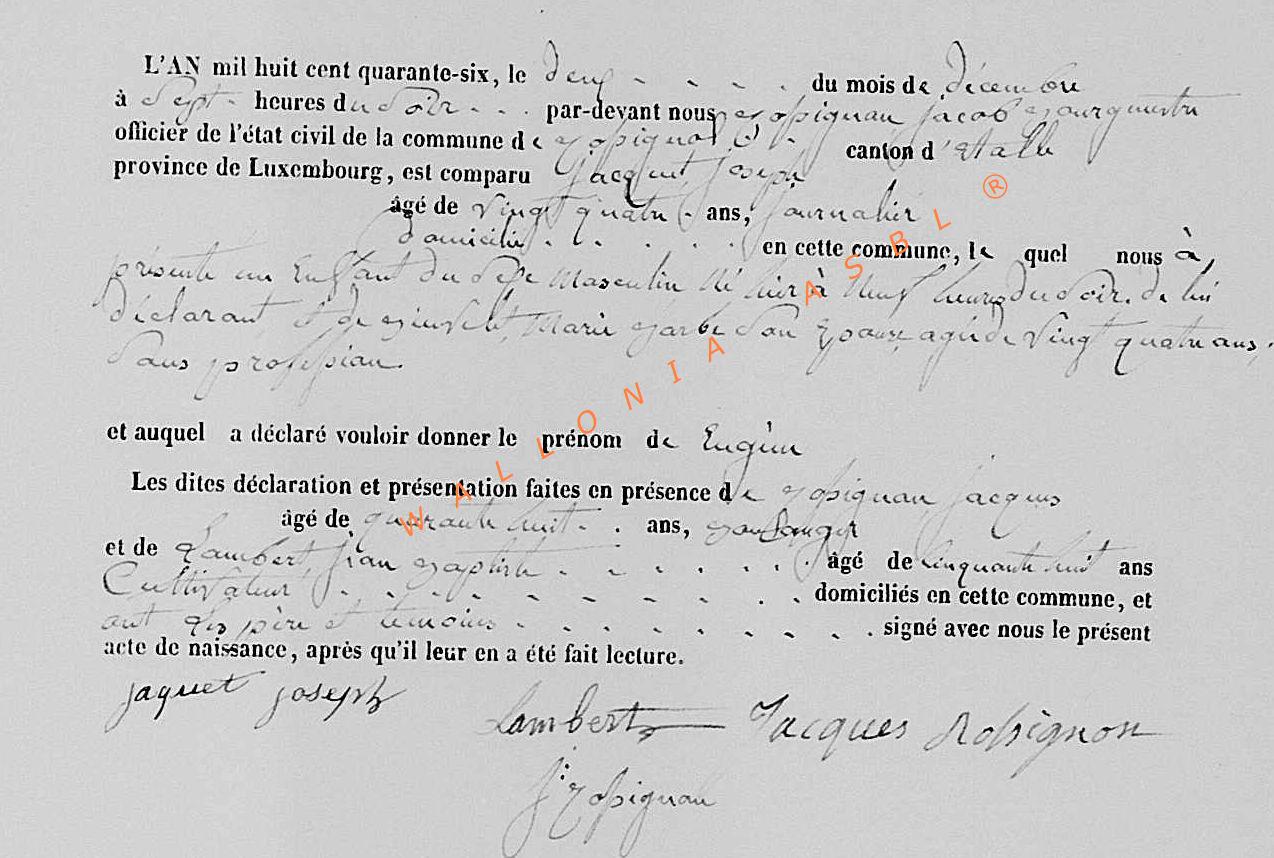 L'AN mil huit cent quarante-six, le deux du mois de décembre
à Sept heures du Soir par-devant nous Rossignon jacob Bourguestre
officier de l'état civil de la commune de Rossignol canton d'Etalle
province de Luxembourg, est comparu Jacquet Joseph
âgé de vingt quatre ans, journalier
domicilié en cette commune, lequel nous à
présenté un Enfant du Sexe Masculin Né hier à Neuf heures du Soir. de lui
déclarant, et de Marie Barbe Son Epouse, agée de vingt quatre ans,
Sans profession.
et auquel a déclaré vouloir donner le prénom de Eugène
Les dites déclaration et présentation faites en présence de Rossignon jacques
âgé de quarante huit ans, Boulanger
et de Lambert, jean Baptiste âgé de cinquante huit ans
Cultivateur domiciliés en cette commune, et
ont Les père et témoins signé avec nous le présent
acte de naissance, après qu'il leur en a été fait lecture.
jaquet joseph
Lambert Jacques Rossignon
J: Rossignon
WALLONIA ASBL ®